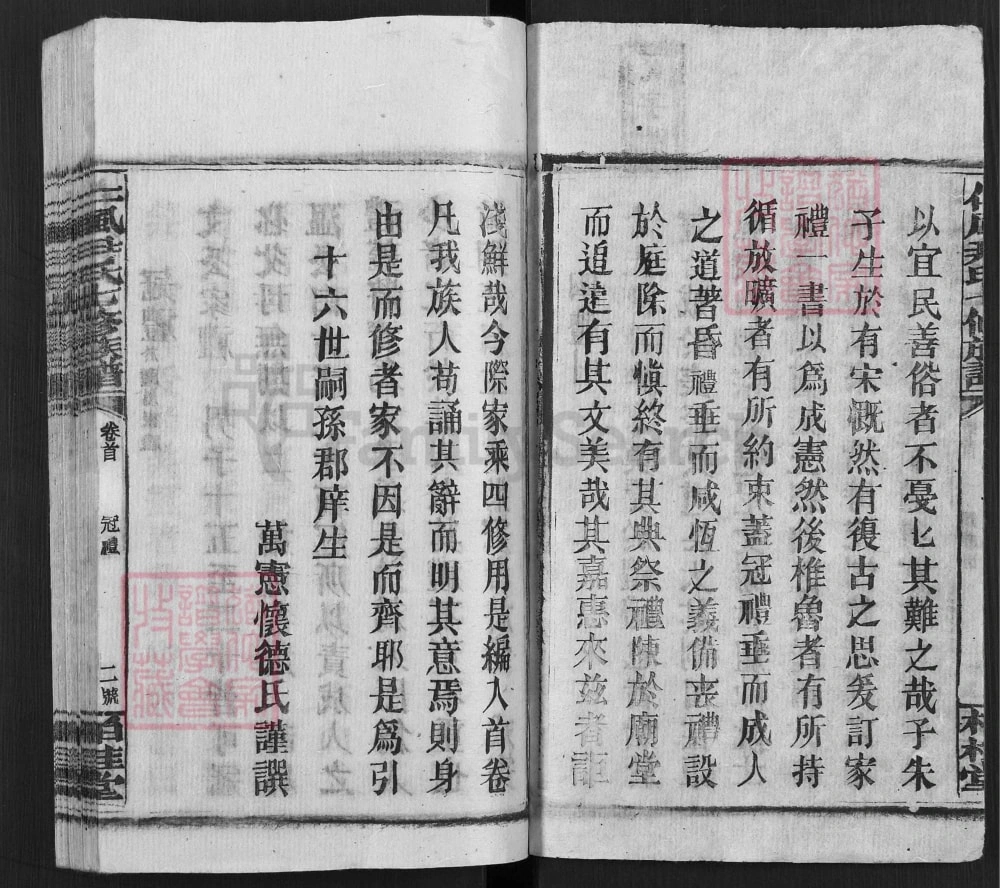 以宜民善俗者不戞乜其難之哉子朱
子生於有宋慨然有復古之思爰訂家
禮一書以爲成憲然後椎魯者有所持
循放曠者有所約束蓋冠禮垂而成人
之道著昏禮垂而咸恆之義俻丧禮設
於庭除而愼終有其典祭禮陳於廟堂
而追遠有其文美哉其嘉惠來兹者詎
淺鮮哉今際家乘四修用是編入首卷
凡我族人苟誦其辭而明其意焉則身
由是而修者家不因是而齊耶是爲引
十六世嗣孫郡庠生
萬憲懷德氏謹譔
尹氏七修族譜
卷首
冠禮
二號
桂堂
FamilySearch